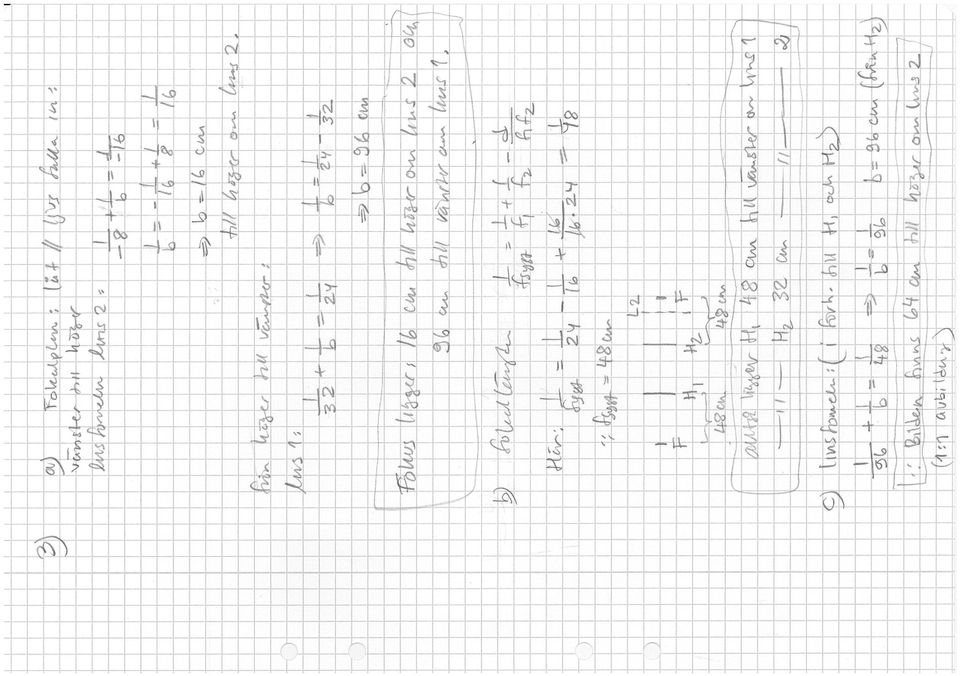 3)
a) Fokalplan: låt // ljus falla in:
vänster till höger
linsformeln lins 2:
1/-8 + 1/b = 1/-16
1/b = -1/16 + 1/8 = 1/16
⇒ b = 16 cm
till höger om lins 2.
från höger till vänster:
lins 1:
1/32 + 1/b = 1/24 ⇒ 1/b = 1/24 - 1/32
⇒ b = 96 cm
Fokus ligger: 16 cm till höger om lins 2 och
96 cm till vänster om lins 1.
b) fokallängden 1/fsyst = 1/f1 + 1/f2 - d/f1f2
Här: 1/fsyst = 1/24 - 1/16 + 16/16·24 = 1/48
∴ fsyst = 48 cm
L2
F H1 H2 F
48 cm 48 cm
alltså ligger H1 48 cm till vänster om lins 1
—"— H2 32 cm —"— 2
c) linsformeln: (i förh. till H1 och H2)
1/96 + 1/b = 1/48 ⇒ 1/b = 1/96 b = 96 cm (från H2)
∴ Bilden finns 64 cm till höger om lins 2
(1:1 avbildning)